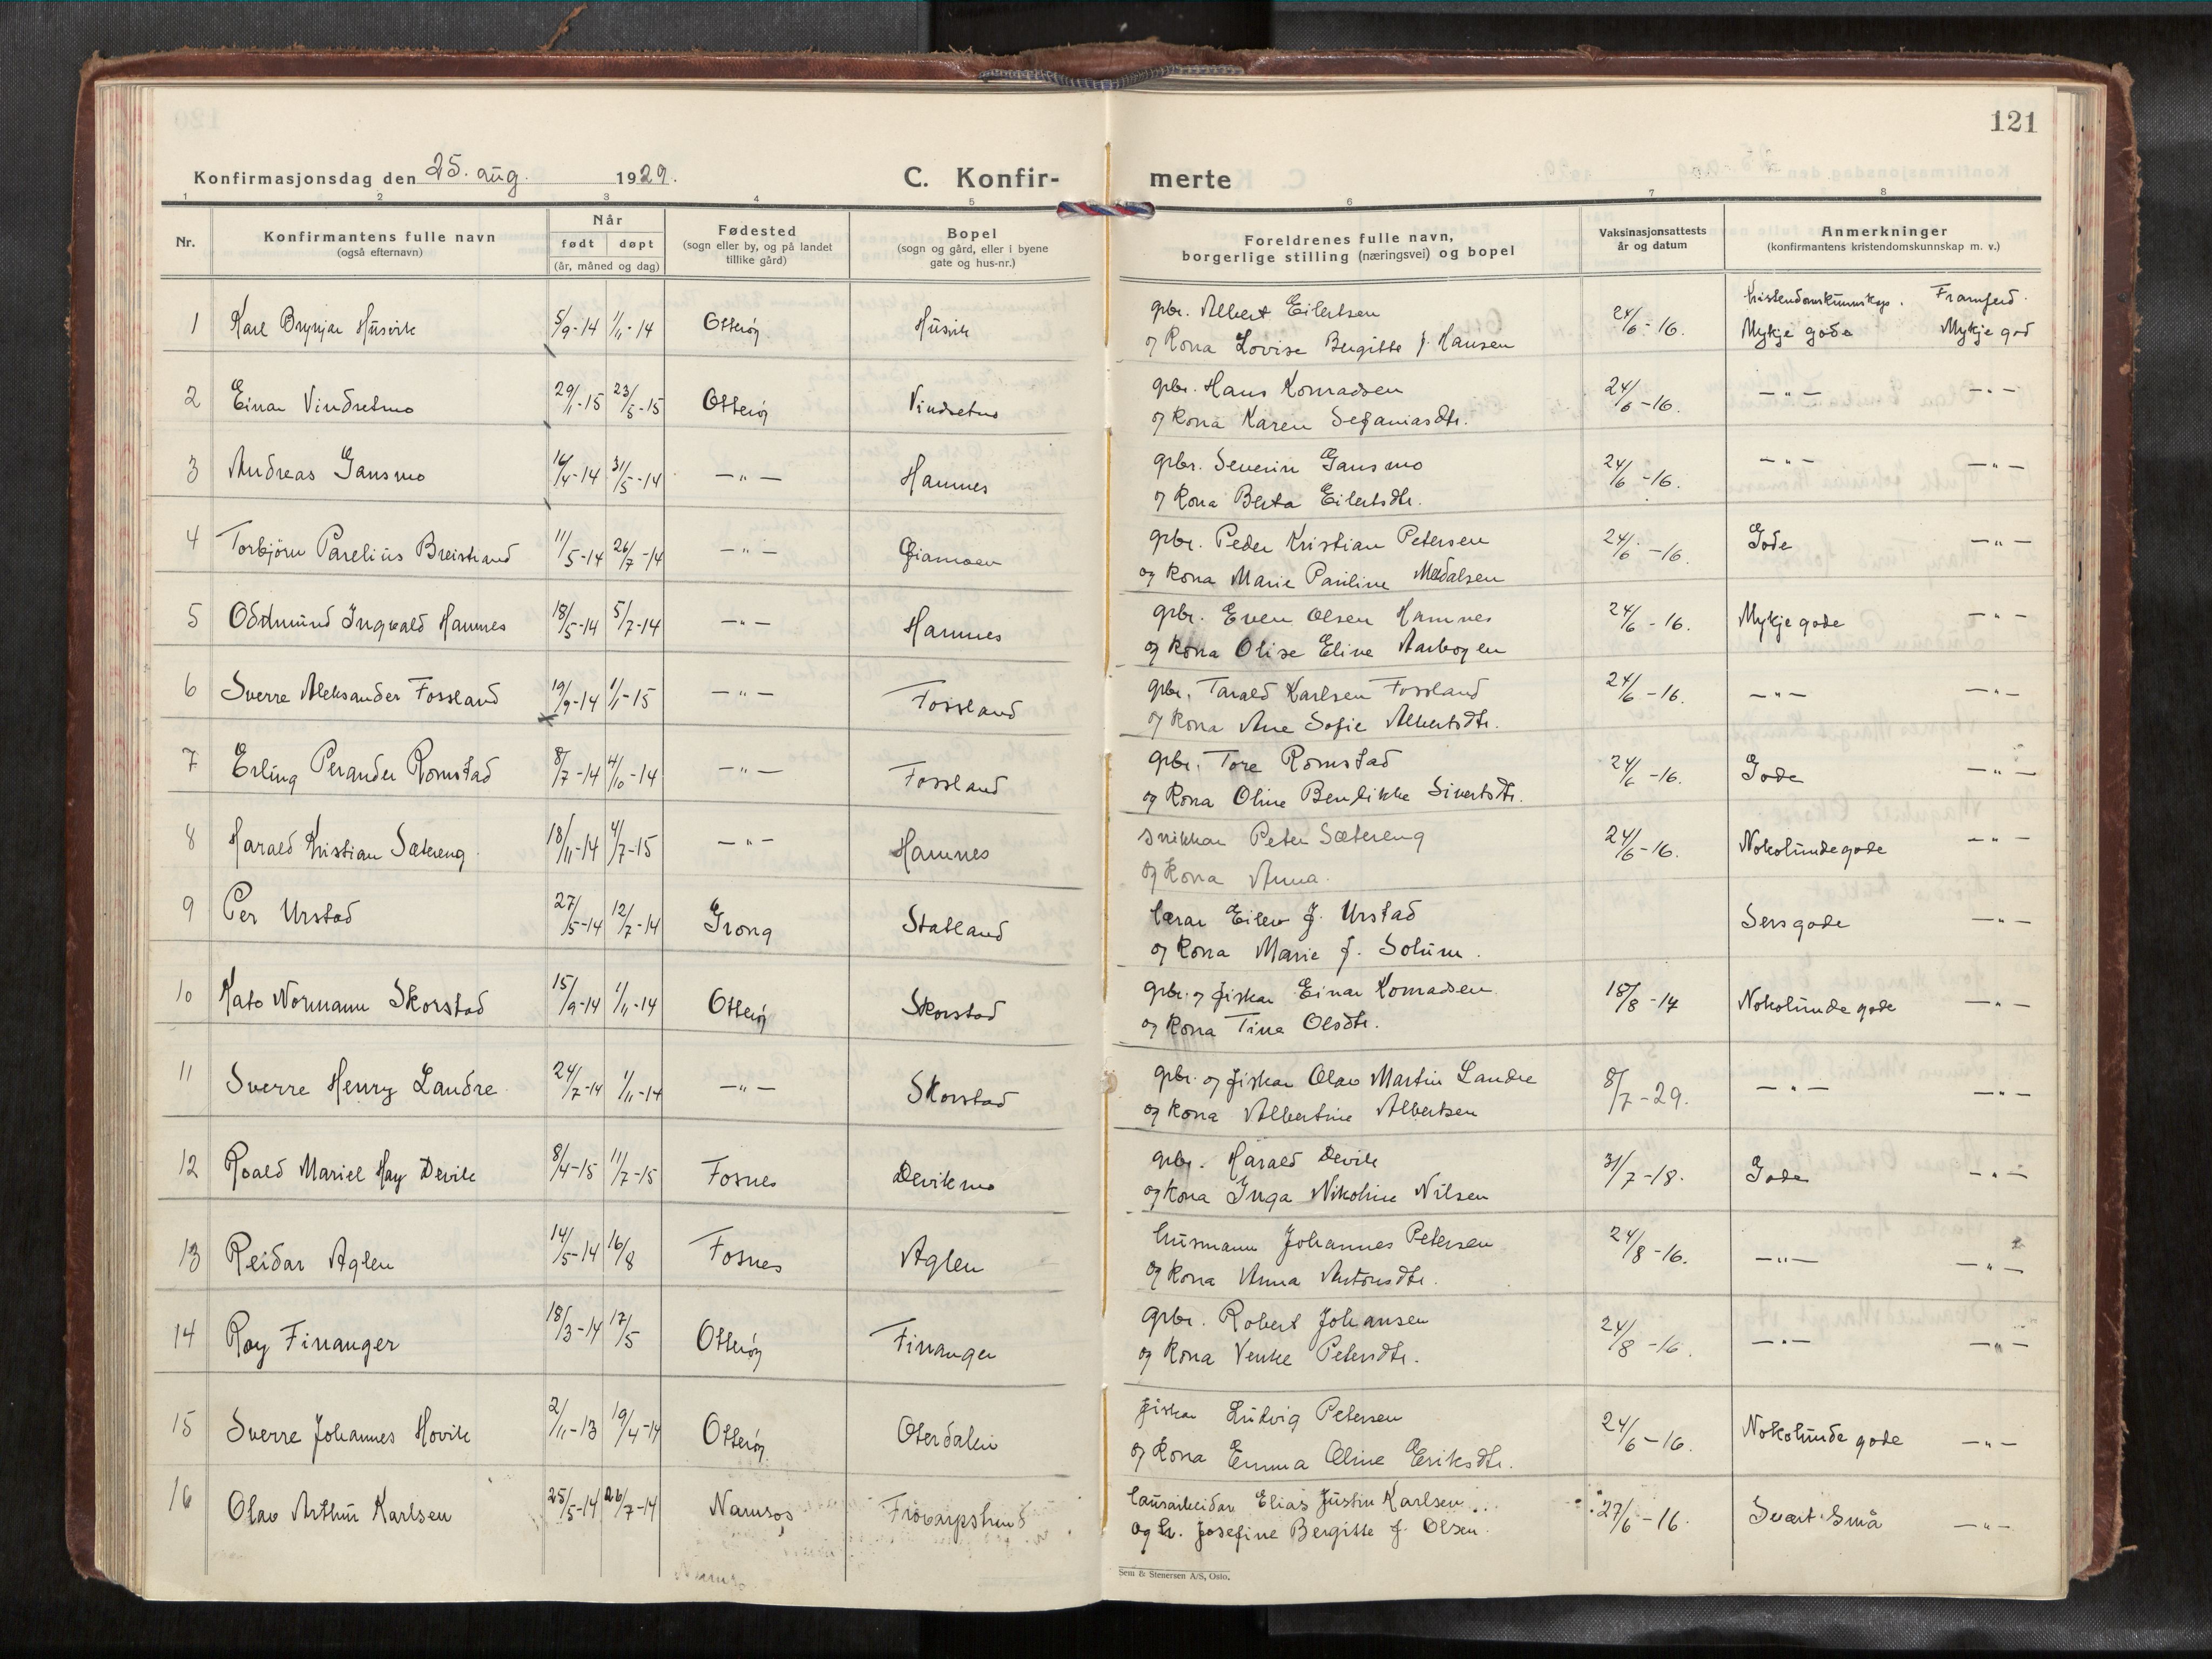 121
Konfirmasjonsdag den 25. aug. 1929. C. Konfir- merte
1 2 3 4 5 6 7 8
Nr. Konfirmantens fulle navn (også efternavn) Når født døpt (år, måned og dag) Fødested (sogn eller by, og på landet tillike gård) Bopel (sogn og gård, eller i byene gate og hus-nr.) Foreldrenes fulle navn, borgerlige stilling (næringsvei) og bopel Vaksinasjonsattests år og datum Anmerkninger (konfirmantens kristendomskunnskap m. v.)
Kristendomskunnskap. Framferd.
1 Karl Brynjar Husvik 5/9-14 1/11-14 Otterøy Husvik gbr. Albert Eilertsen 24/6-16. Mykje gode Mykje god
og kona Lovise Bergitte f. Hansen
2 Einar Vindsetmo 29/1-15 23/5-15 Otterøy Vindsetmo gbr. Hans Konradsen 24/6-16. —"— —"—
og kona Karen Sefaniasdtr.
3 Andreas Gansmo 16/4-14 31/5-14 —"— Hamnes gbr. Severin Gansmo 24/6-16. —"— —"—
og kona Berta Eilertsdtr.
4 Torbjörn Parelius Breistrand 11/5-14 26/7-14 —"— gbr. Peder Kristian Petersen 24/6-16. Gode —"—
og kona Marie Pauline Medalsen
5 Oddmund Ingvald Hamnes 18/5-14 5/7-14 —"— Hamnes gbr. Even Olsen Hamnes 24/6-16. Mykje gode —"—
og kona Olise Eline Aarbogen
6 Sverre Aleksander Fossland 19/9-14 1/1-15 —"— Fossland gbr. Tarald Karlsen Fossland 24/6-16. —"— —"—
og kona Ane Sofie Albertsdtr.
7 Erling Perander Romstad 8/7-14 4/10-14 —"— Fossland gbr. Tore Romstad 24/6-16. Gode —"—
og kona Oline Bendikke Sivertsdtr.
8 Harald Kristian Sætereng 18/11-14 4/7-15 —"— Hamnes snikkar Peter Sætereng 24/6-16. Nokolunde gode —"—
og kona Anna.
9 Per Urstad 27/5-14 12/7-14 Grong Statland lærar Eilev J. Urstad Sers gode —"—
og kona Marie f. Solum.
10 Kato Normann Skorstad 15/9-14 1/11-14 Otterøy Skorstad gbr. og fiskar Einar Konradsen 18/8-17 Nokolunde gode —"—
og kona Tina Olsdtr.
11 Sverre Henry Landre 24/7-14 1/11-14 —"— Skorstad gbr. og fiskar Olav Martin Landre 8/7-29. —"— —"—
og kona Albertine Albertsen
12 Roald Mariel Hay Devik 8/4-15 11/7-15 Fosnes Devikmo gbr. Harald Devik 31/7-18. Gode —"—
og kona Inga Nikoline Nilsen
13 Reidar Aglen 14/5-14 16/8 Fosnes Aglen husmann Johannes Petersen 24/8-16. —"— —"—
og kona Anna Antonsdtr.
14 Roy Finanger 18/3-14 17/5 Otterøy Finanger gbr. Robert Johansen 24/8-16. —"— —"—
og kona Venke Petersdtr.
15 Sverre Johannes Hovik 2/11-13 19/4-14 Otterøy Oterdalen fiskar Ludvig Petersen 24/6-16. Nokolunde gode —"—
og kona Emma Oline Eriksdtr.
16 Olav Arthur Karlsen 25/5-14 26/7-14 Namsos lausarbeidar Elias Justin Karlsen 27/6-16. Svært små —"—
og h. Josefine Bergitte f. Olsen.
Sem & Stenersen A/S, Oslo.